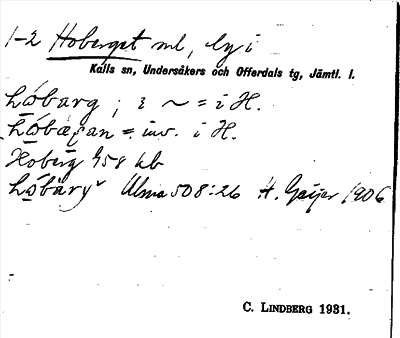 1-2 Hoberget ml, by i
Kalls sn, Undersåkers och Offerdals tg, Jämtl. l.
hóbarg ; i ~ = i H.
= inv. i H.
Hoberg 758 kb
Ulma 508:26 H. Geijer 1906
C. LINDBERG 1931.